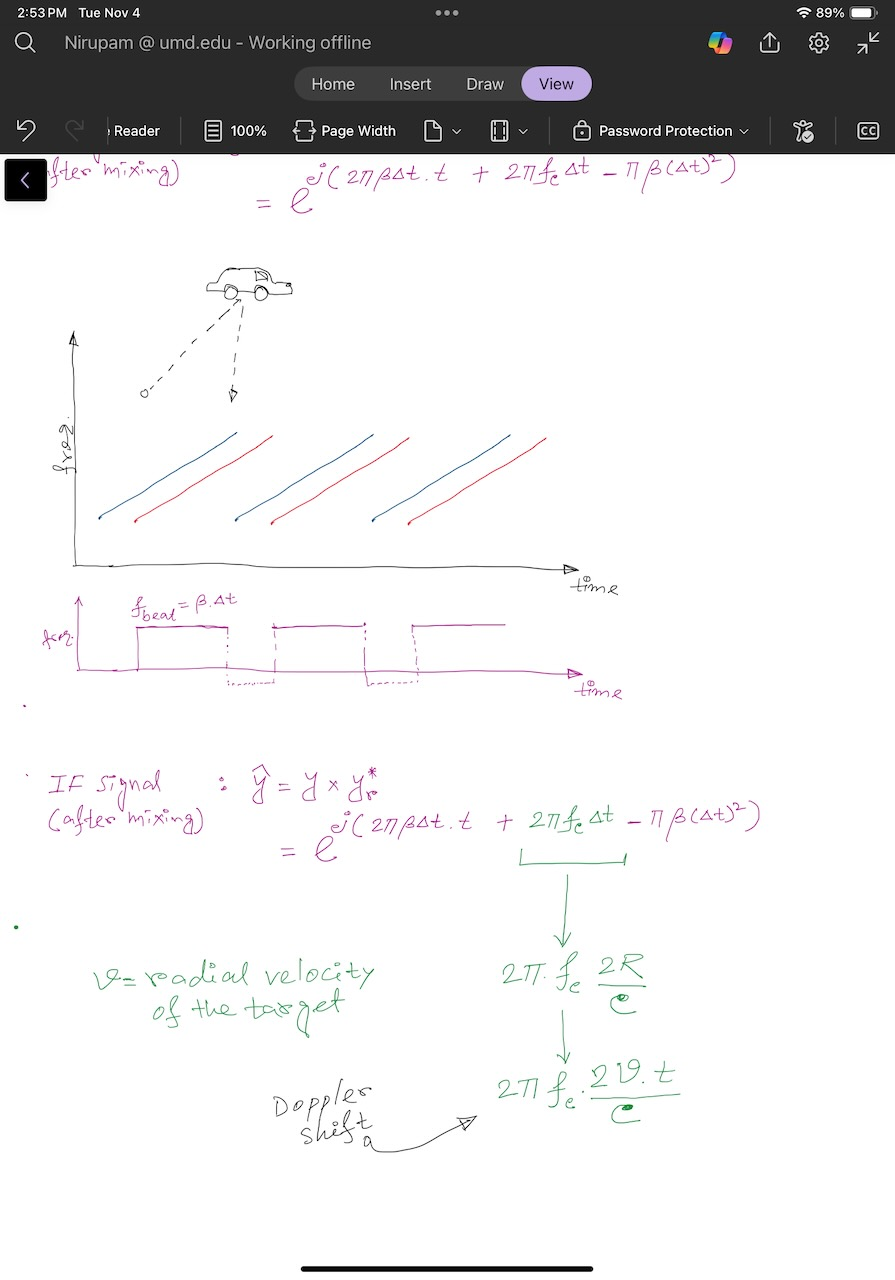 2:53 PM Tue Nov 4
89%
Nirupam @ umd.edu - Working offline
Home Insert Draw View
Reader 100% Page Width Password Protection CC
after mixing)
= e^j(2πβΔt.t + 2πf_cΔt - πβ(Δt)²)
freq.
time
f_beat = β.Δt
freq.
time
IF signal : ŷ = y × y_r*
(after mixing)
= e^j(2πβΔt.t + 2πf_cΔt - πβ(Δt)²)
v = radial velocity
of the target
2π.f_c 2R/c
2πf_c.2v.t/c
Doppler
shift